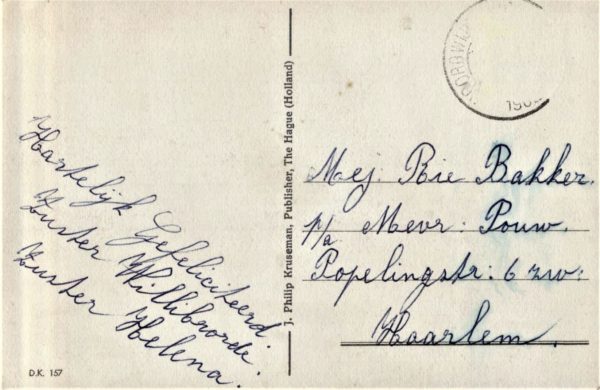 Hartelijk Gefeliciteerd
Zuster Willibrorde.
Zuster Helena.
D.K. 157
J. Philip Kruseman, Publisher, The Hague (Holland)
Mej. Rie Bakker.
p/a Mevr: Pouw.
Popelingstr: 6 zw:
Haarlem.